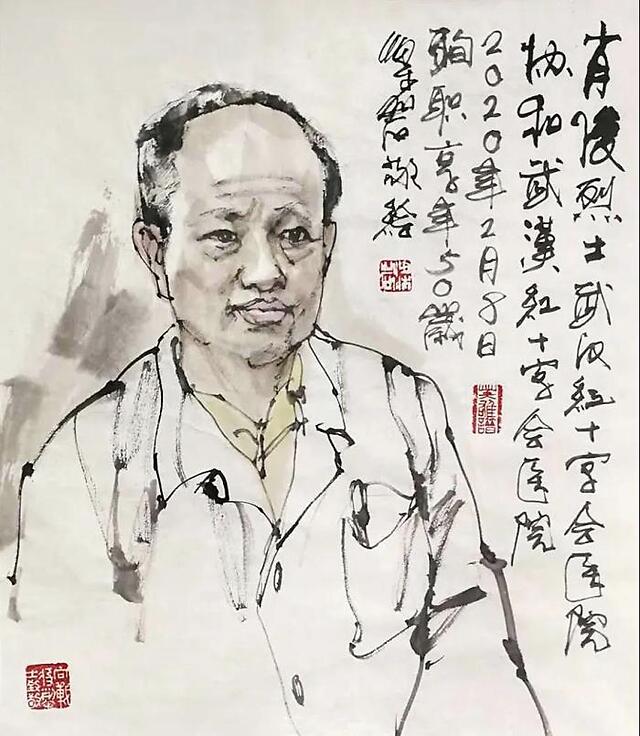 肖俊烈士武汉红十字会医院
协和武漢红十字会医院
2020年2月8日
殉职享年50歲
敬绘
英雄譜